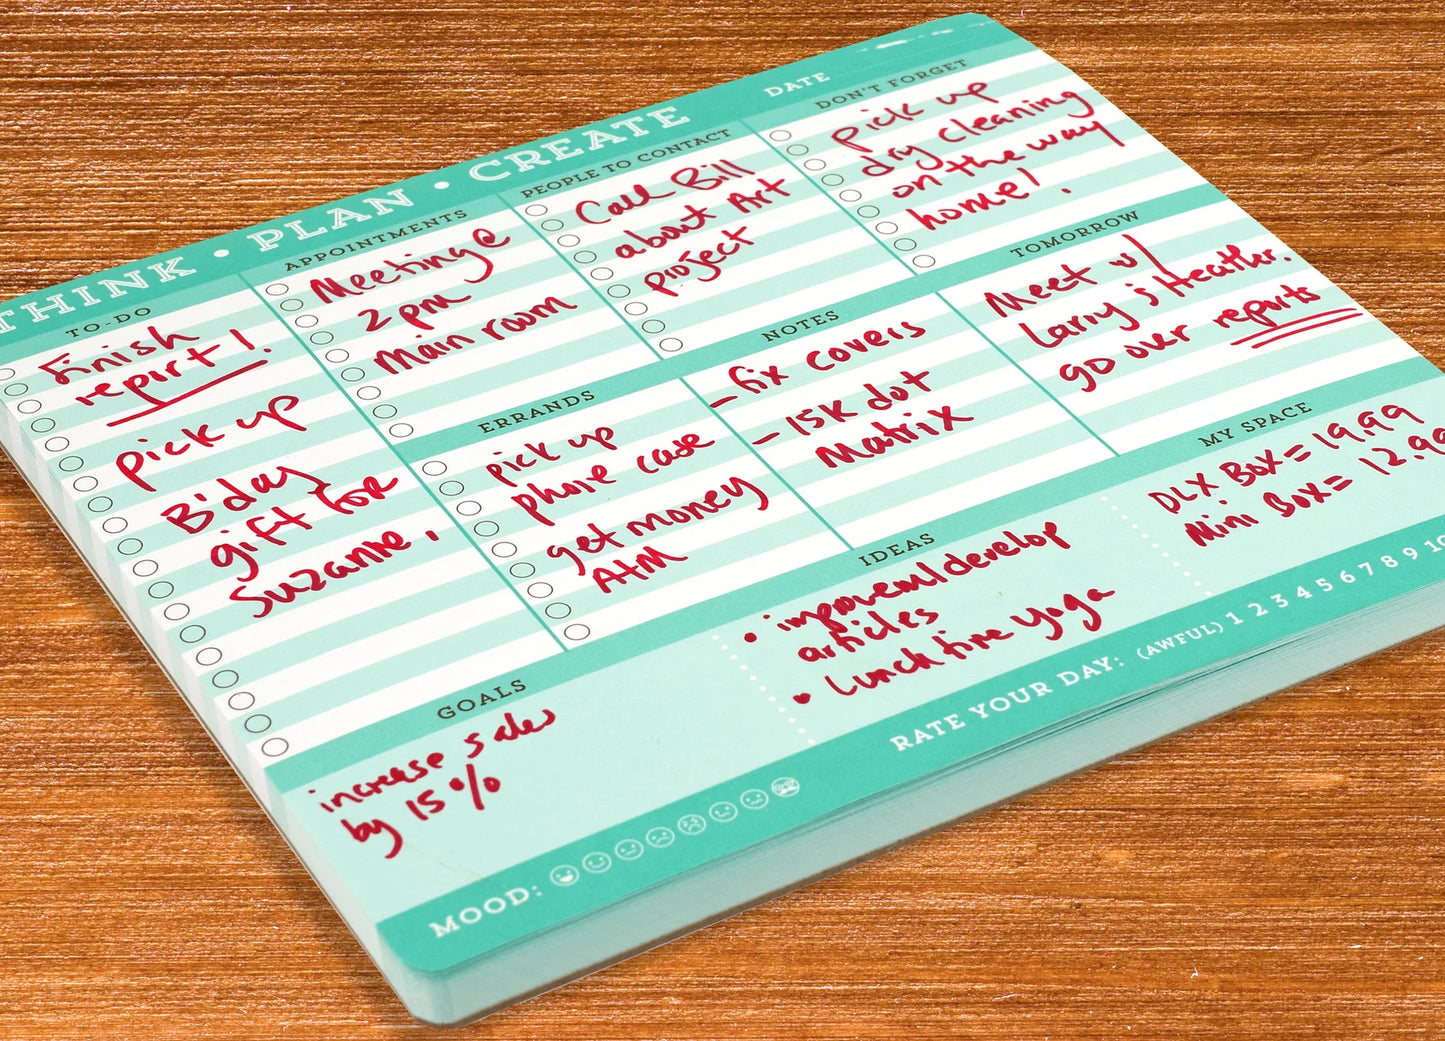 THINK • PLAN • CREATE
DATE
TO-DO
Finish
repirt!
pick up
B'day
gift for
Suzanne,
APPOINTMENTS
Meeting @
2pm
Main room
PEOPLE TO CONTACT
Call Bill
about Art
project
DON'T FORGET
pick up
dry cleaning
on the way
home!
ERRANDS
pick up
phone case
get money
ATM
NOTES
- fix covers
- 15K dot
Matrix
TOMORROW
Meet w/
Larry & Heather.
go over reports
GOALS
increase sales
by 15%
IDEAS
• improvem/develop
articles
• Lunch time yoga
MY SPACE
DLX Box = 19.99
Mini Box = 12.99
MOOD:
RATE YOUR DAY: (AWFUL) 1 2 3 4 5 6 7 8 9 10